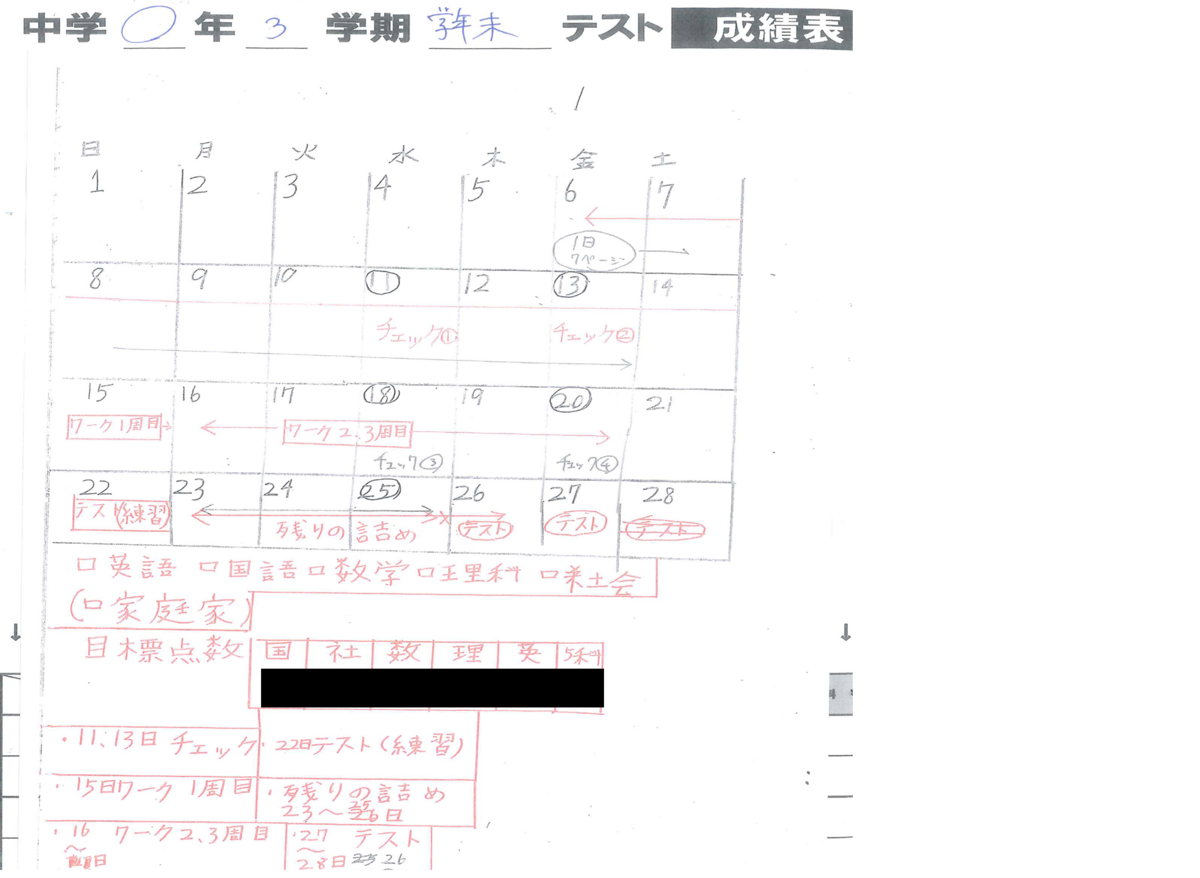 中学 〇 年 3 学期 学年末 テスト 成績表
1
日 月 火 水 木 金 土
1 2 3 4 5 6 7
1日
7ページ
8 9 10 ⑪ 12 ⑬ 14
チェック① チェック②
15 16 17 ⑱ 19 ⑳ 21
ワーク1周目 ワーク2、3周目
チェック③ チェック④
22 23 24 ㉕ 26 27 28
テスト(練習) 残りの詰め テスト テスト テスト
□英語 □国語 □数学 □理科 □社会
(□家庭家)
目標点数 国 社 数 理 英 5科
・11、13日 チェック ・22日テスト(練習)
・15日ワーク 1周目 ・残りの詰め
23〜 日
・16 ワーク2、3周目 ・27 テスト
〜 〜
日 28日 25 26